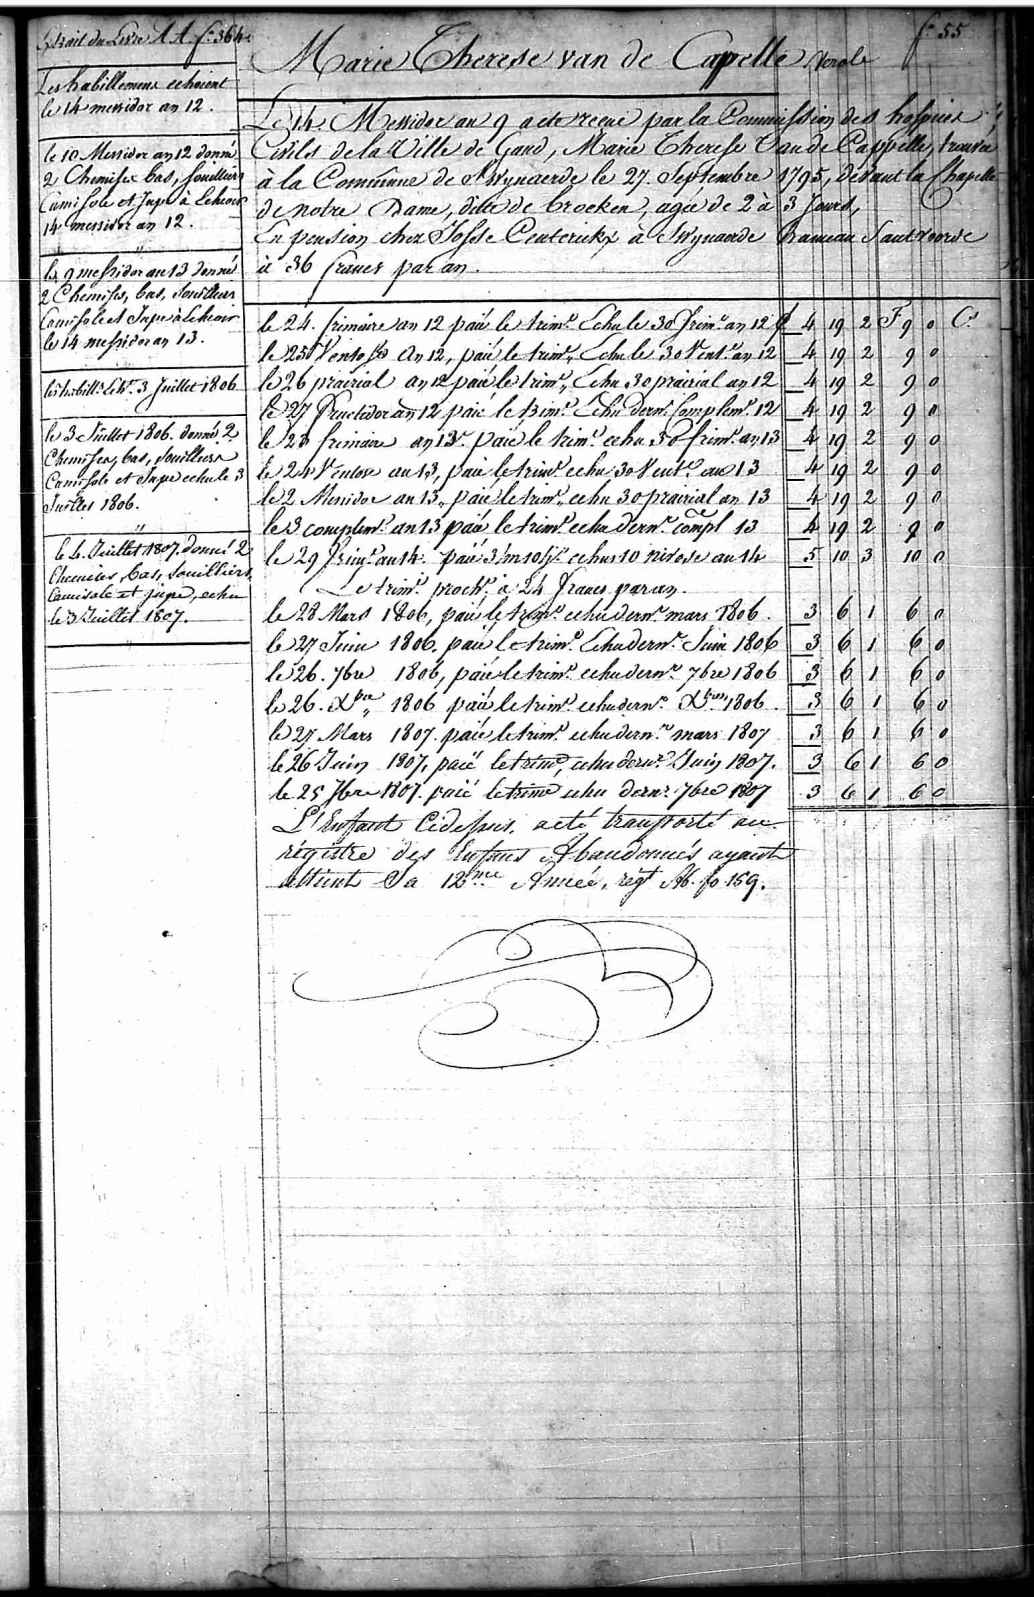 Extrait du Livre AA fo. 364
Les habillemens echoient
le 14 messidor an 12.
le 10 Messidor an 12 donné
2 Chemises bas, souilliers
Camisole et Jupe à Lecheoir
14 messidor an 12.
"
le 9 messidor an 13 donné
2 Chemises, bas, souilliers
Camisole et Jupe à Lecheoir
le 14 messidor an 13.
les habill. 3 Juillet 1806
le 3 Juillet 1806. donné 2
Chemises, bas, souilliers
Camisole et Jupe echu le 3
Juillet 1806.
"
le Juillet 1807. donné 2
Chemises, bas, souilliers
Camisole et jupe, echu
le 3 Juillet 1807.
fo. 55
Marie Therese van de Capelle
Le 14 Messidor an 9 a ete recue par la Commission des hospices
Civils de la Ville de Gand, Marie Therese Van de Cappelle, trouvée
à la Commune de Swynaerde le 27. Septembre 1795, devant la Chapelle
de notre Dame, dite de broeken, agée de 2 à 3 Jours,
En pension chez Josse Ceuterickx à Swynaerde hameau Sautvoorde
à 36 francs par an.
le 24. frimaire an 12 paié le trim.e Echu le 30 frim.e an 12 £ 4 19 2 F 9 0 C.s
le 25 Ventose An 12, paié le trim.e Echu le 30 Vent.e an 12 4 19 2 9 0
le 26 prairial an 12 paié le trim.e Echu 30 prairial an 12 4 19 2 9 0
le 27 fructidor an 12 paié le trim.e Echu dern.r Complem.e 12 4 19 2 9 0
le 23 frimaire an 13. paié le trim.e echu 30 frim.e an 13 4 19 2 9 0
le 24 Ventose an 13, paié le trim.e echu 30 Vent.e an 13 4 19 2 9 0
le 2 Messidor an 13, paié le trim.e echu 30 prairial an 13 4 19 2 9 0
le 3 complem.e an 13 paié le trim.e echu dern.r compl 13 4 19 2 9 0
le 29 frim.e an 14. paié 3 m 10 j.s echus 10 nivose an 14 5 10 3 10 0
Le trim.e proch.n à 24 francs par an.
le 28 Mars 1806, paié le trim.e echu dern.r mars 1806. 3 6 1 6 0
le 27 Juin 1806, paié le trim.e Echu dern.r Juin 1806 3 6 1 6 0
le 26. 7bre 1806, paié le trim.e echu dern.r 7bre 1806 3 6 1 6 0
le 26. Xbre 1806 paié le trim.e echu dern.r Xbre 1806. 3 6 1 6 0
le 27 Mars 1807. paié le trim.e echu dern.r mars 1807 3 6 1 6 0
le 26 Juin 1807, paié le trime, echu dern.r Juin 1807. 3 6 1 6 0
le 25 7bre 1807. paié le trime echu dern.r 7bre 1807 3 6 1 6 0
L'Enfant Cidessus, a eté transporté au
régistre des Enfans Abandonnés ayant
atteint Sa 12me Année, regt Ab. fo 159.